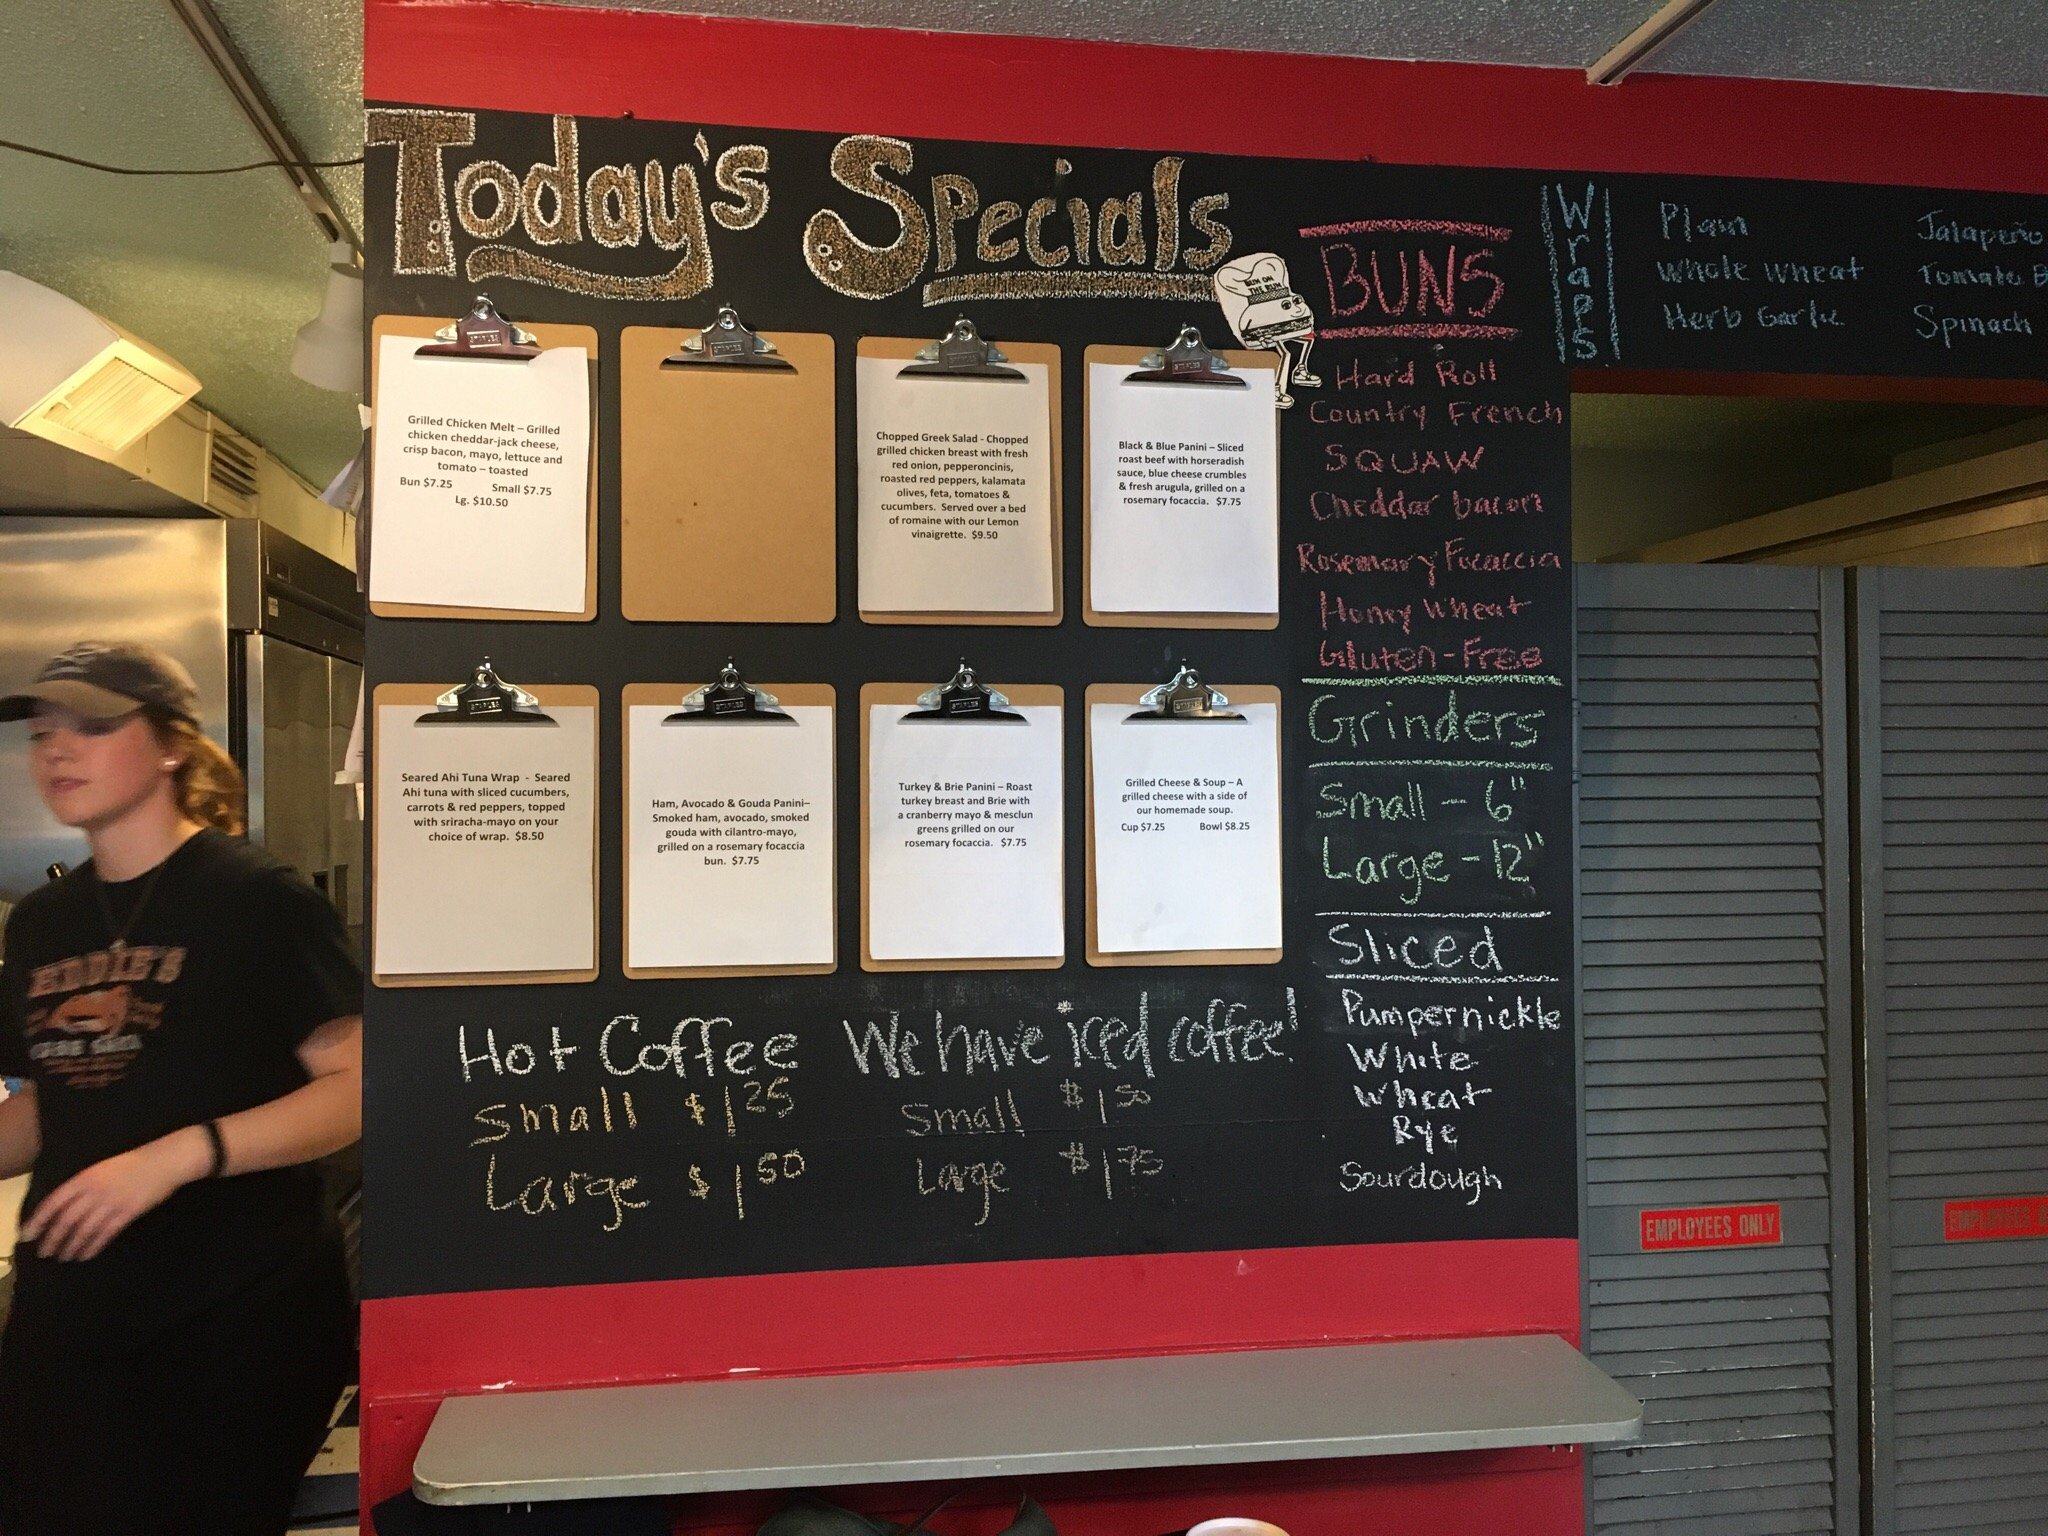 Today's Specials
Grilled Chicken Melt – Grilled
chicken cheddar-jack cheese,
crisp bacon, mayo, lettuce and
tomato – toasted
Bun $7.25 Small $7.75
Lg. $10.50
STAPLES
Chopped Greek Salad - Chopped
grilled chicken breast with fresh
red onion, pepperoncinis,
roasted red peppers, kalamata
olives, feta, tomatoes &
cucumbers. Served over a bed
of romaine with our Lemon
vinaigrette. $9.50
Black & Blue Panini – Sliced
roast beef with horseradish
sauce, blue cheese crumbles
& fresh arugula, grilled on a
rosemary focaccia. $7.75
STAPLES
Seared Ahi Tuna Wrap - Seared
Ahi tuna with sliced cucumbers,
carrots & red peppers, topped
with sriracha-mayo on your
choice of wrap. $8.50
STAPLES
Ham, Avocado & Gouda Panini–
Smoked ham, avocado, smoked
gouda with cilantro-mayo,
grilled on a rosemary focaccia
bun. $7.75
STAPLES
Turkey & Brie Panini – Roast
turkey breast and Brie with
a cranberry mayo & mesclun
greens grilled on our
rosemary focaccia. $7.75
Grilled Cheese & Soup – A
grilled cheese with a side of
our homemade soup.
Cup $7.25 Bowl $8.25
Hot Coffee
Small $1 25
Large $1 50
We have iced coffee!
Small $1 50
Large $1 75
BUN ON
THE RUN
BUNS
Hard Roll
Country French
SQUAW
Cheddar bacon
Rosemary Focaccia
Honey Wheat
Gluten-Free
Grinders
Small – 6"
Large – 12"
Sliced
Pumpernickle
White
Wheat
Rye
Sourdough
Wraps
Plain
Whole Wheat
Herb Garlic
Jalapeño
Tomato B
Spinach
EMPLOYEES ONLY
EMPLOYEES O
EDDIE'S